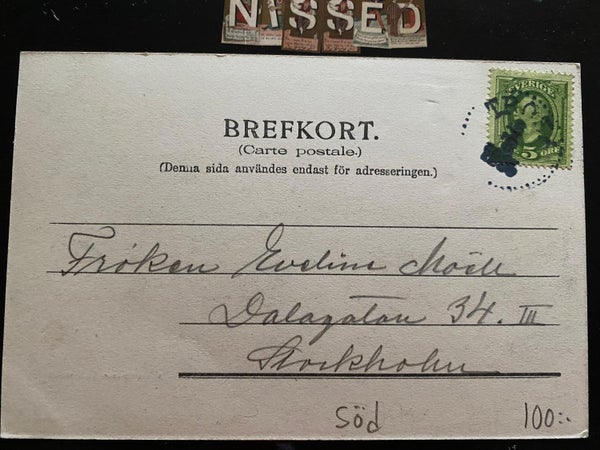 NISSED
BREFKORT.
(Carte postale.)
(Denna sida användes endast för adresseringen.)
SVERIGE
5 ÖRE
Fröken Eveline
Dalagatan 34. III
Stockholm
söd 100:-